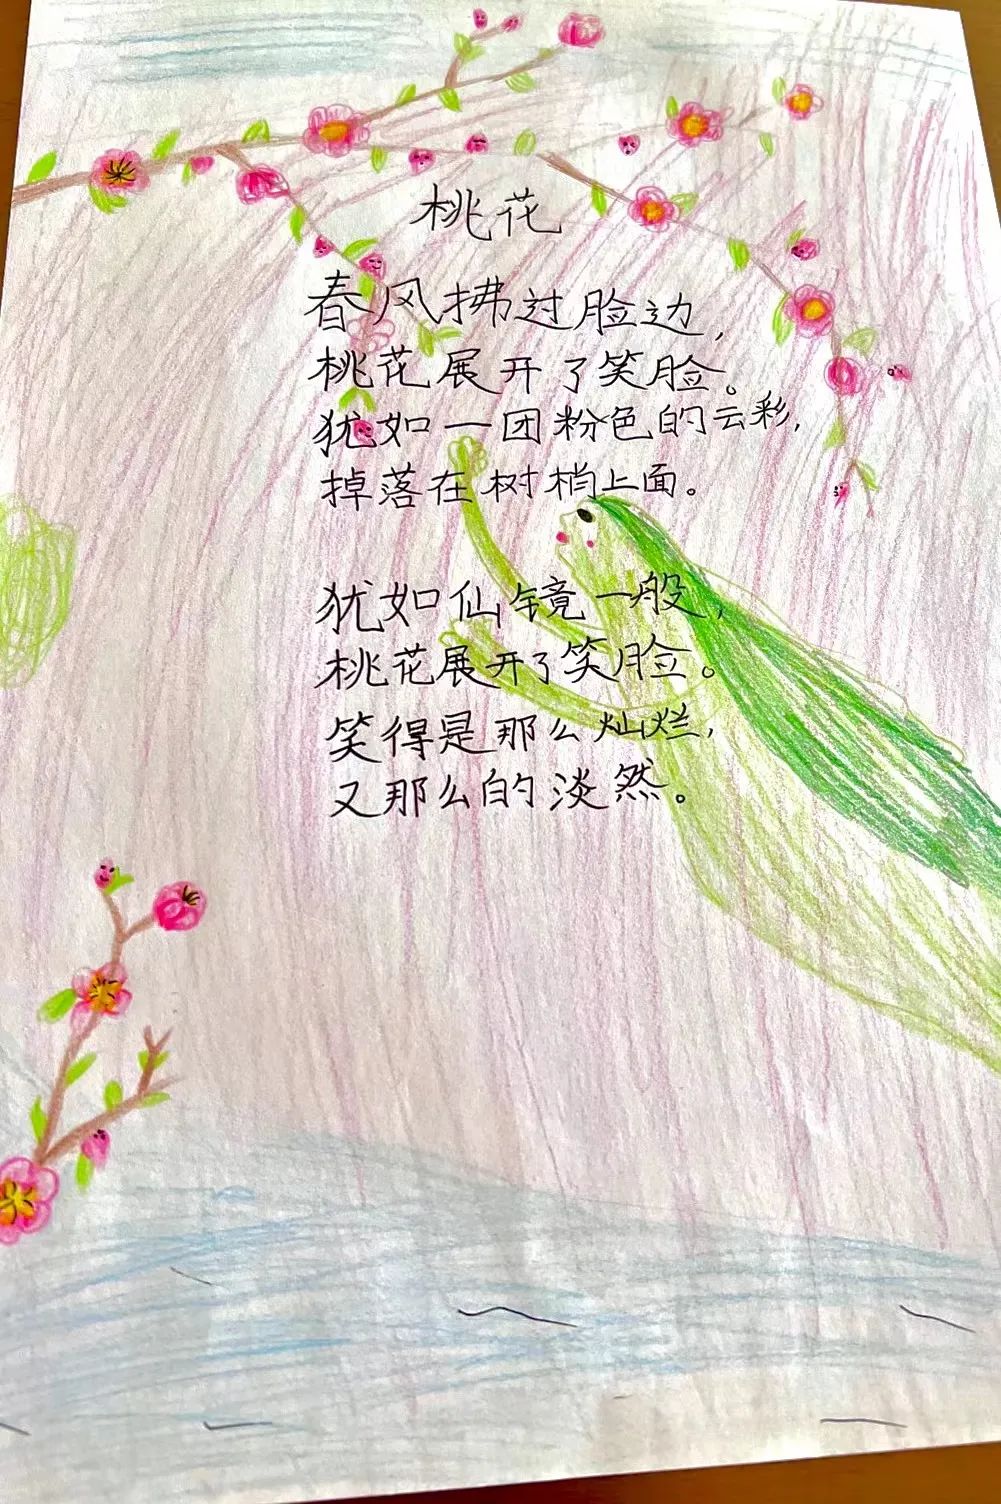 桃花
春风拂过脸边，
桃花展开了笑脸。
犹如一团粉色的云彩，
掉落在树梢上面。
犹如仙镜一般，
桃花展开了笑脸。
笑得是那么灿烂，
又那么的淡然。